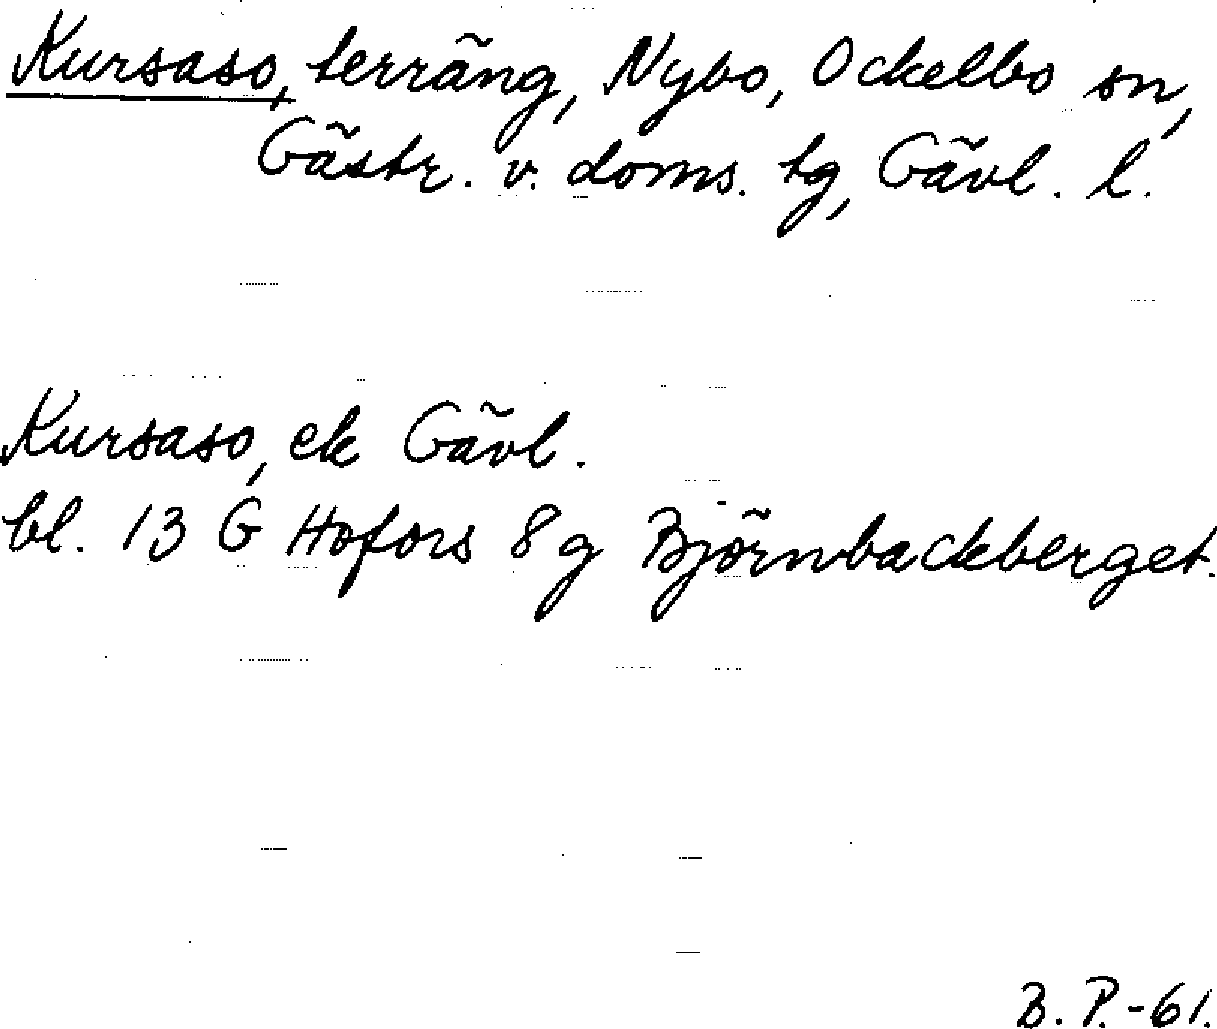 Kursaso, terräng, Nybo, Ockelbo sn,
Gästr. v. doms. tg, Gävl. l.
Kursaso, ek Gävl.
bl. 13 G Hofors 8 g Björnbackberget.
B. P. -61.